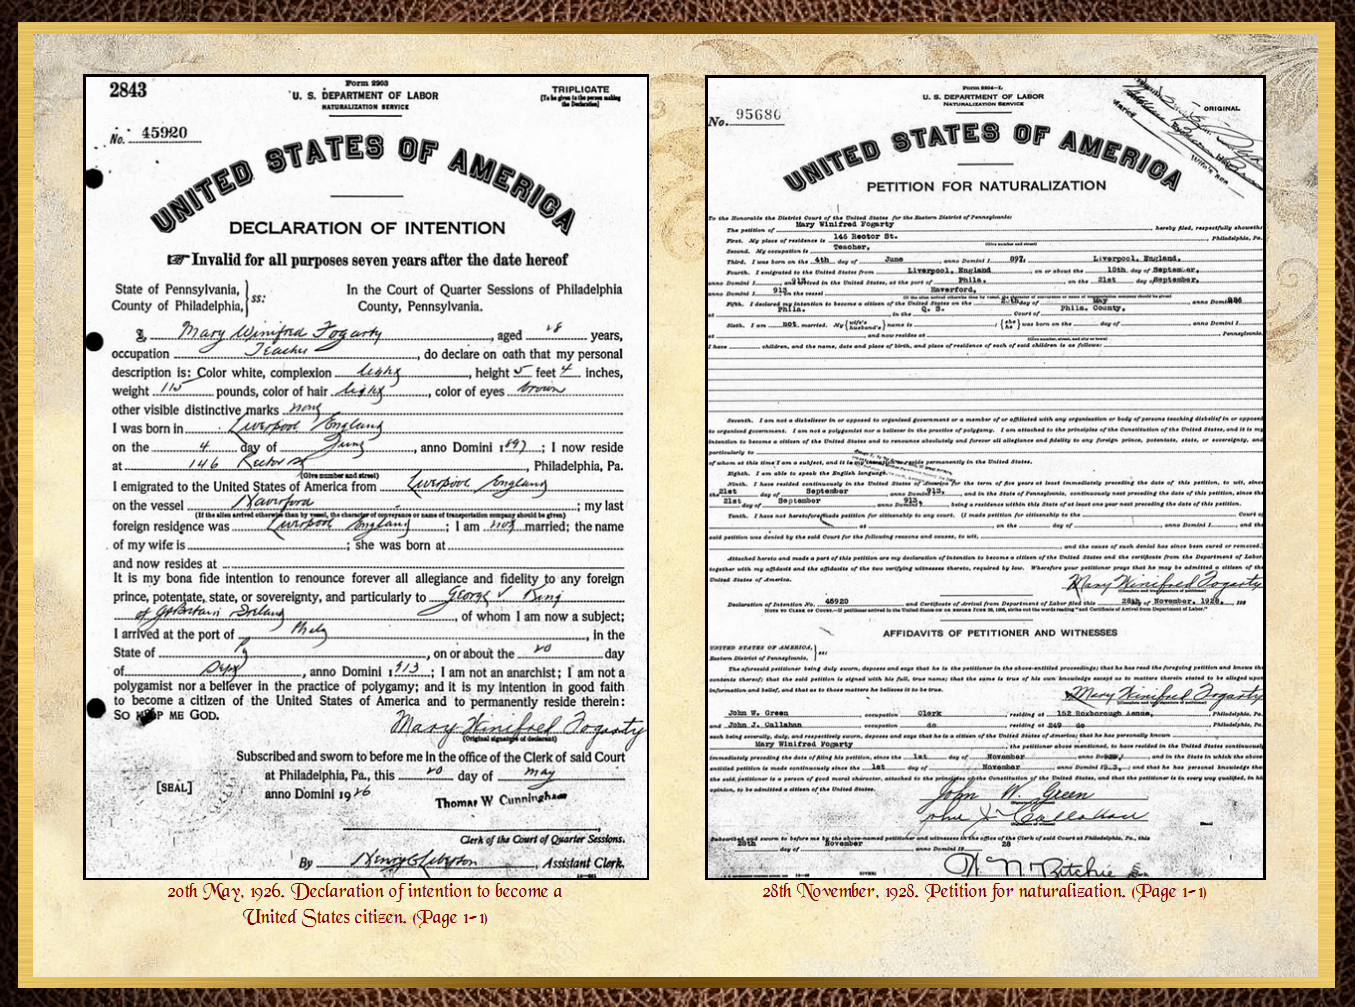 2843
Form 2203
U. S. DEPARTMENT OF LABOR
NATURALIZATION SERVICE
TRIPLICATE
[To be given to the person making
the Declaration]
No. 45920
UNITED STATES OF AMERICA
DECLARATION OF INTENTION
Invalid for all purposes seven years after the date hereof
State of Pennsylvania,
County of Philadelphia,
ss:
In the Court of Quarter Sessions of Philadelphia
County, Pennsylvania.
I, Mary Winifred Fogarty, aged 28 years,
occupation Teacher, do declare on oath that my personal
description is: Color white, complexion light, height 5 feet 4 inches,
weight 115 pounds, color of hair light, color of eyes brown
other visible distinctive marks none
I was born in Liverpool England
on the 4 day of June, anno Domini 1897; I now reside
at 146 Rector St, Philadelphia, Pa.
(Give number and street)
I emigrated to the United States of America from Liverpool England
on the vessel Haverford; my last
(If the alien arrived otherwise than by vessel, the character of conveyance or name of transportation company should be given)
foreign residence was Liverpool England; I am not married; the name
of my wife is; she was born at
and now resides at
It is my bona fide intention to renounce forever all allegiance and fidelity to any foreign
prince, potentate, state, or sovereignty, and particularly to George V King
of Gt Britain Ireland, of whom I am now a subject;
I arrived at the port of Phila, in the
State of, on or about the 20 day
of Sept, anno Domini 1913; I am not an anarchist; I am not a
polygamist nor a believer in the practice of polygamy; and it is my intention in good faith
to become a citizen of the United States of America and to permanently reside therein:
SO HELP ME GOD.
Mary Winifred Fogarty
(Original signature of declarant)
Subscribed and sworn to before me in the office of the Clerk of said Court
at Philadelphia, Pa., this 20 day of May
[SEAL]
anno Domini 1926
Thomas W Cunningham
Clerk of the Court of Quarter Sessions.
By, Assistant Clerk.
20th May, 1926. Declaration of intention to become a
United States citizen. (Page 1-1)
Form 2204-L
U. S. DEPARTMENT OF LABOR
NATURALIZATION SERVICE
ORIGINAL
No. 95680
UNITED STATES OF AMERICA
PETITION FOR NATURALIZATION
To the Honorable the District Court of the United States for the Eastern District of Pennsylvania:
The petition of Mary Winifred Fogarty hereby filed, respectfully showeth:
First. My place of residence is 146 Rector St., Philadelphia, Pa.
(Give number and street)
Second. My occupation is Teacher,
Third. I was born on the 4th day of June, anno Domini 1 897, Liverpool, England,
Fourth. I emigrated to the United States from Liverpool, England on or about the 10th day of September,
anno Domini 1 913 and arrived in the United States, at the port of Phila. on the 21st day of September,
anno Domini 1 913, in the vessel Haverford,
Fifth. I declared my intention to become a citizen of the United States on the 20th day of May anno Domini 926
at Phila. in the Q. S. Court of Phila. County,
Sixth. I am not married. My (wife's husband's) name is; (she he) was born on the day of, anno Domini 1
at, and now resides at, Pennsylvania.
I have children, and the name, date and place of birth, and place of residence of each of said children is as follows:
Seventh. I am not a disbeliever in or opposed to organized government or a member of or affiliated with any organization or body of persons teaching disbelief in or opposed
to organized government. I am not a polygamist nor a believer in the practice of polygamy. I am attached to the principles of the Constitution of the United States, and it is my
intention to become a citizen of the United States and to renounce absolutely and forever all allegiance and fidelity to any foreign prince, potentate, state, or sovereignty, and
particularly to
of whom at this time I am a subject, and it is my intention to reside permanently in the United States.
Eighth. I am able to speak the English language.
Ninth. I have resided continuously in the United States of America for the term of five years at least immediately preceding the date of this petition, to wit, since
the 21st day of September anno Domini 913, and in the State of Pennsylvania, continuously next preceding the date of this petition, since the
21st day of September, anno Domini 913, being a residence within this State of at least one year next preceding the date of this petition.
Tenth. I have not heretofore made petition for citizenship to any court. (I made petition for citizenship to the Court of
at on the day of, anno Domini 1, and the
said petition was denied by the said Court for the following reasons and causes, to wit,
, and the cause of such denial has since been cured or removed.)
Attached hereto and made a part of this petition are my declaration of intention to become a citizen of the United States and the certificate from the Department of Labor,
together with my affidavit and the affidavits of the two verifying witnesses thereto, required by law. Wherefore your petitioner prays that he may be admitted a citizen of the
United States of America.
Mary Winifred Fogarty
(Complete and true signature of petitioner)
Declaration of Intention No. 45920 and Certificate of Arrival from Department of Labor filed this 28th of November, 1928,
AFFIDAVITS OF PETITIONER AND WITNESSES
UNITED STATES OF AMERICA,
Eastern District of Pennsylvania,
ss:
The aforesaid petitioner being duly sworn, deposes and says that he is the petitioner in the above-entitled proceedings; that he has read the foregoing petition and knows the
contents thereof; that the said petition is signed with his full, true name; that the same is true of his own knowledge except as to matters therein stated to be alleged upon
information and belief, and that as to those matters he believes it to be true.
Mary Winifred Fogarty
John W. Green occupation Clerk residing at 152 Roxborough Avenue, Philadelphia, Pa.
and John J. Callahan occupation do residing at 249 do Philadelphia, Pa.
each being severally, duly, and respectively sworn, deposes and says that he is a citizen of the United States of America; that he has personally known
Mary Winifred Fogarty, the petitioner above mentioned, to have resided in the United States continuously
immediately preceding the date of filing his petition, since the 1st day of November anno Domini, and in the State in which the above
entitled petition is made continuously since the 1st day of November anno Domini, and that he has personal knowledge that
the said petitioner is a person of good moral character, attached to the principles of the Constitution of the United States, and that the petitioner is in every way qualified, in his
opinion, to be admitted a citizen of the United States.
John W. Green
John J. Callahan
Subscribed and sworn to before me by the above-named petitioner and witnesses in the office of the Clerk of said Court at Philadelphia, Pa., this
28th day of November anno Domini 19 28
28th November, 1928. Petition for naturalization. (Page 1-1)